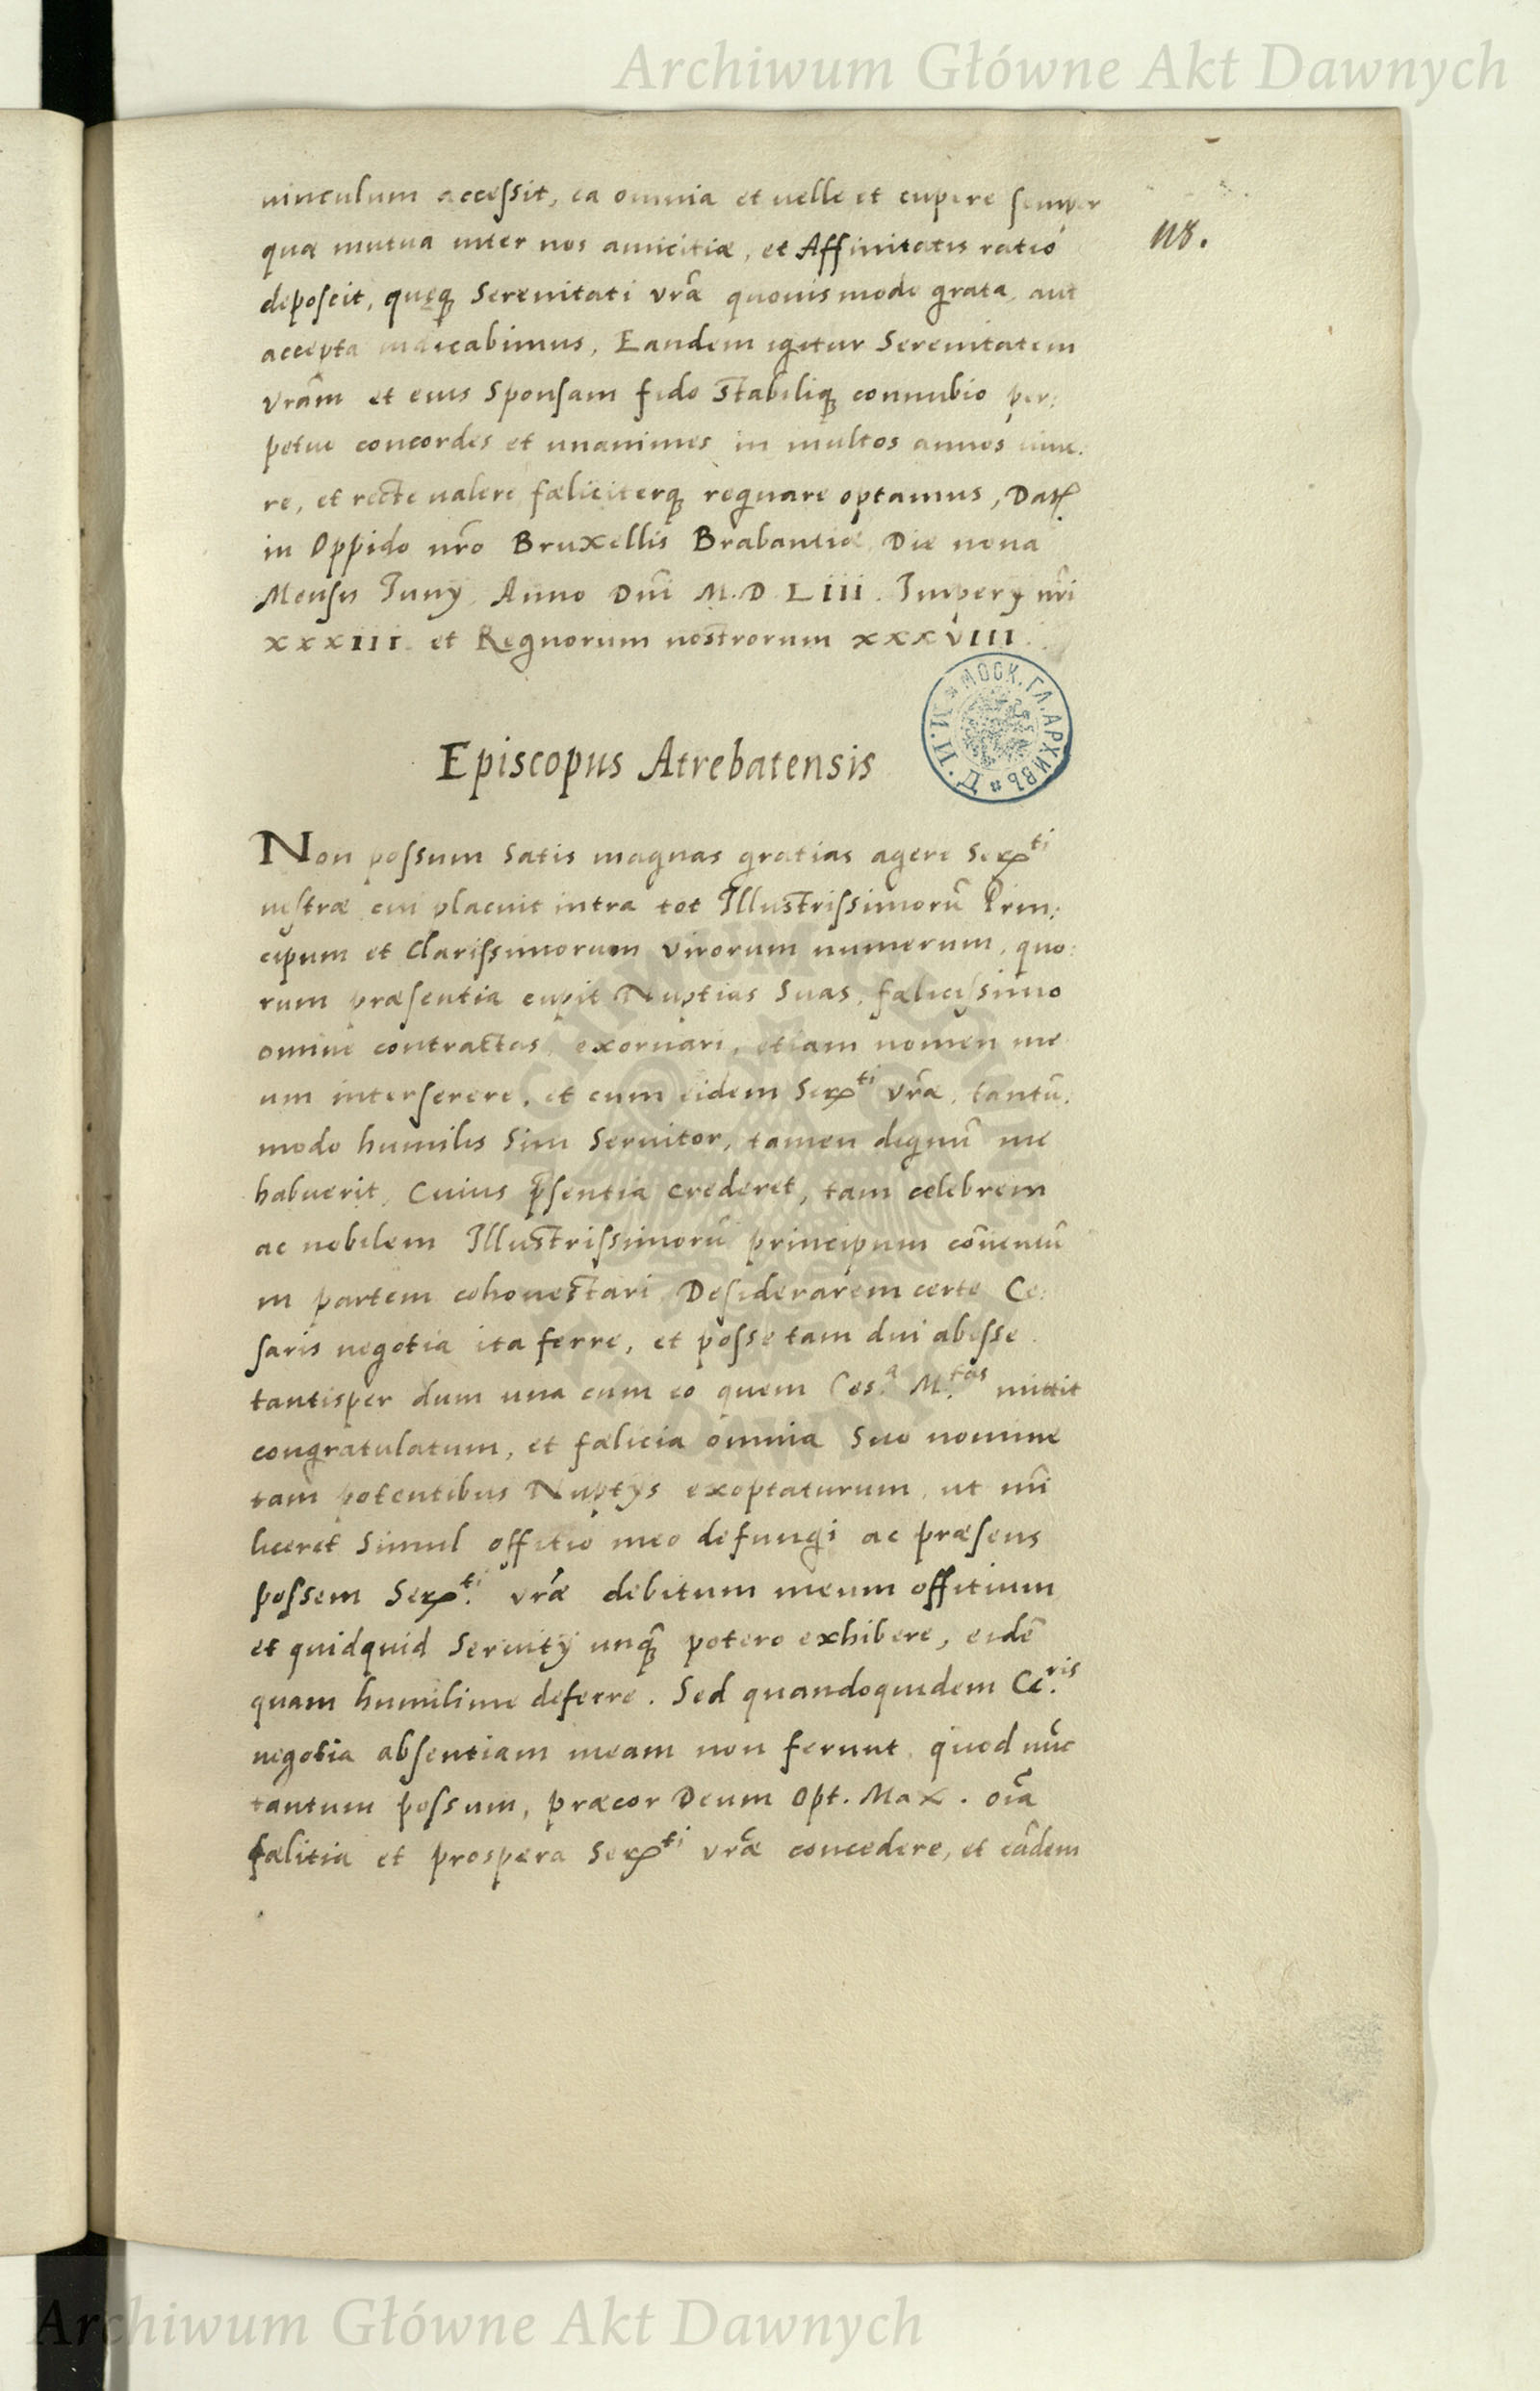 Archiwum Główne Akt Dawnych
uinculum accessit, ea omnia et uelle et cupere semper
quæ mutua inter nos amicitiæ, et Affinitatis ratio
118.
deposcit, quęq̨ Serenitati vr̃æ quouis modo grata, aut
accepta iudicabimus, Eandem igitur Serenitatem
vram̃ et eius Sponsam fido stabiliq̨ connubio per:
petuo concordes et unanimes in multos annos uiue:
re, et recte ualere fæliciterq̨ regnare optamus, Dat̃
in Oppido nr̃o Bruxellis Brabantiæ Die nona
Mensis Iunÿ Anno Dñi M.D.LIII. Imperÿ nr̃i
XXXIII. et Regnorum nostrorum XXXVIII.
МОСК. ГЛ. АРХИВЪ
Episcopus Atrebatensis
Non possum satis magnas gratias agere Ser.ti
uestræ cui placuit intra tot Illustrissimorũ Prin:
cipum et Clarissimorum virorum numerum, quo:
rum præsentia cupit Nuptias Suas, fælicissimo
omine contractas, exornari, etiam nomen me
um interserere, et cum eidem Ser.ti vr̃æ, tantũ:
modo humilis sim Seruitor, tamen dignũ me
habuerit, Cuius p̃sentia crederet, tam celebrem
ac nobilem Illustrissimorũ principum cõuentũ
in partem cohonestari. Desiderarem certe Ce:
saris negotia ita ferre, et posse tam diu abesse
tantisper dum una cum eo quem Ces.a M.tas mittit
congratulatum, et fælicia omnia Suo nomine
tam potentibus Nuptÿs exoptaturum, ut mĩ
liceret simul offitio meo defungi ac præsens
possem Ser.ti vr̃æ debitum meum offitium
et quidquid Seruitÿ unq̃ potero exhibere, eidẽ
quam humilime deferre. Sed quandoquidem Ce.ris
negotia absentiam meam non ferunt, quod nũc
tantum possum, præcor Deum Opt. Max. oĩa
fælitia et prospera Ser.ti vr̃æ concedere, et eãdem
Archiwum Główne Akt Dawnych